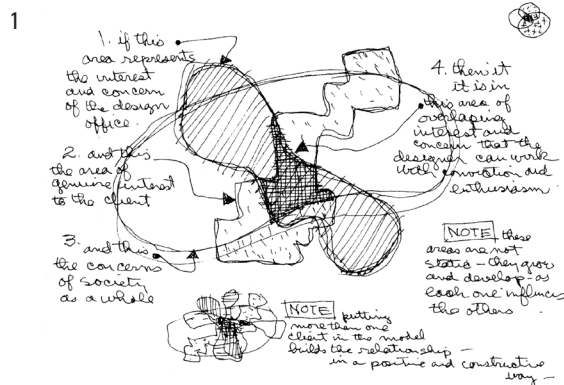 1
1. if this
area represents
the interest
and concern
of the design
office.
2. and this
the area of
genuine interest
to the client
3. and this
the concerns
of society
as a whole
4. then it
it is in
this area of
overlaping
interest and
concern that the
designer can work
with conviction and
enthusiasm
NOTE these
areas are not
static - they grow
and develop - as
each one influences
the others.
NOTE putting
more than one
client in the model
builds the relationship -
in a positive and constructive
way -